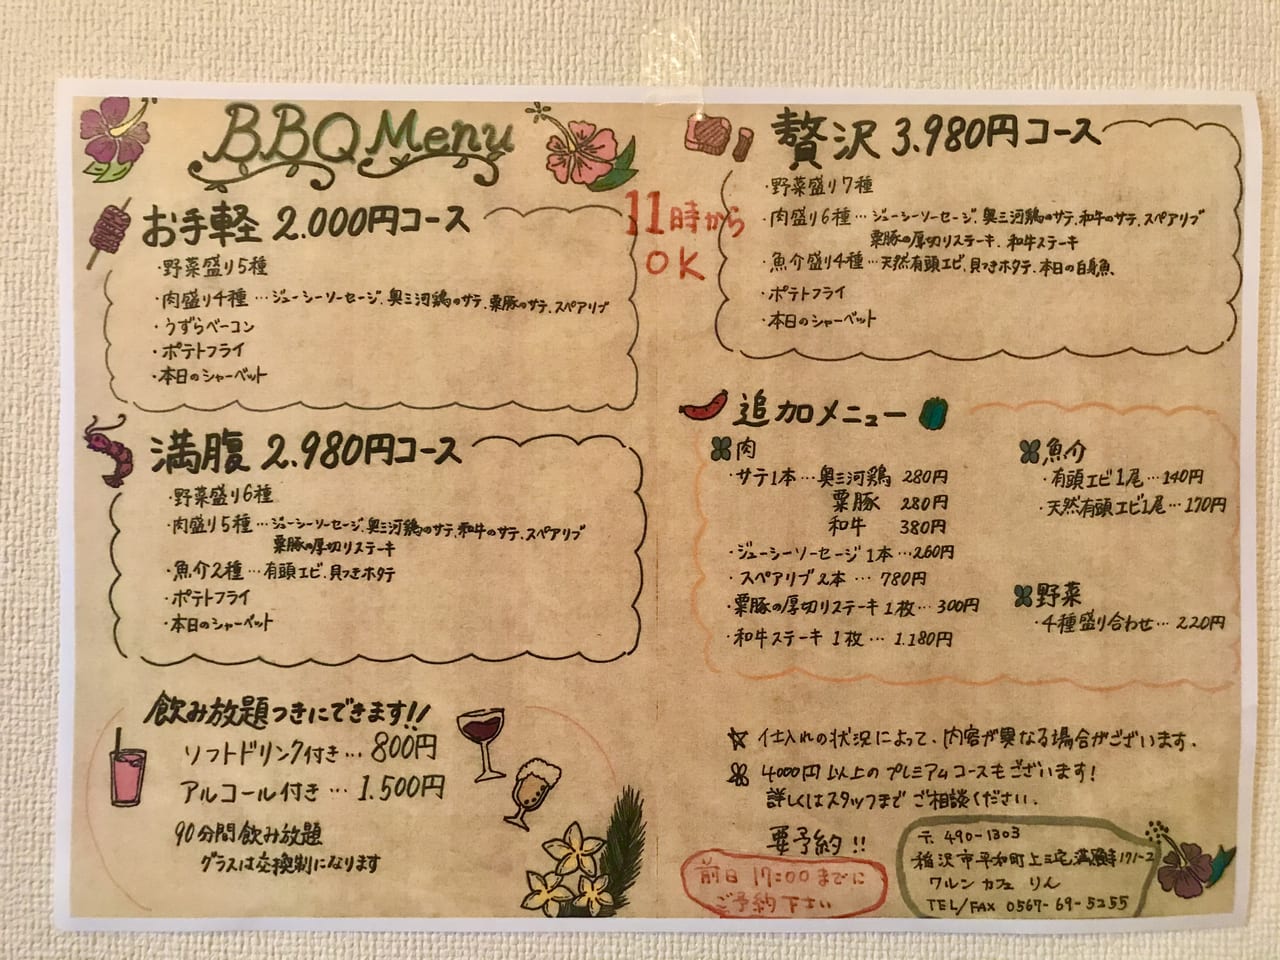 BBQ Menu
お手軽 2.000円コース
・野菜盛り5種
・肉盛り4種…ジューシーソーセージ、奥三河鶏のサテ、粟豚のサテ、スペアリブ
・うずらベーコン
・ポテトフライ
・本日のシャーベット
満腹 2.980円コース
・野菜盛り6種
・肉盛り5種…ジューシーソーセージ、奥三河鶏のサテ、和牛のサテ、スペアリブ
粟豚の厚切りステーキ
・魚介2種…有頭エビ、貝つきホタテ
・ポテトフライ
・本日のシャーベット
飲み放題つきにできます!!
ソフトドリンク付き…800円
アルコール付き…1.500円
90分間飲み放題
グラスは交換制になります
11時から
OK
贅沢 3.980円コース
・野菜盛り7種
・肉盛り6種…ジューシーソーセージ、奥三河鶏のサテ、和牛のサテ、スペアリブ
粟豚の厚切りステーキ、和牛ステーキ
・魚介盛り4種…天然有頭エビ、貝つきホタテ、本日の白身魚、
・ポテトフライ
・本日のシャーベット
追加メニュー
肉
・サテ1本…奥三河鶏 280円
粟豚 280円
和牛 380円
・ジューシーソーセージ1本…260円
・スペアリブ2本…780円
・粟豚の厚切りステーキ1枚…300円
・和牛ステーキ1枚…1.180円
魚介
・有頭エビ1尾…140円
・天然有頭エビ1尾…170円
野菜
・4種盛り合わせ…220円
仕入れの状況によって、内容が異なる場合がございます。
4000円以上のプレミアムコースもございます!
詳しくはスタッフまでご相談ください。
要予約!!
前日17:00までに
ご予約下さい
〒490-1303
稲沢市平和町上三宅満願寺171-2
ワルンカフェ りん
TEL/FAX 0567-69-5255